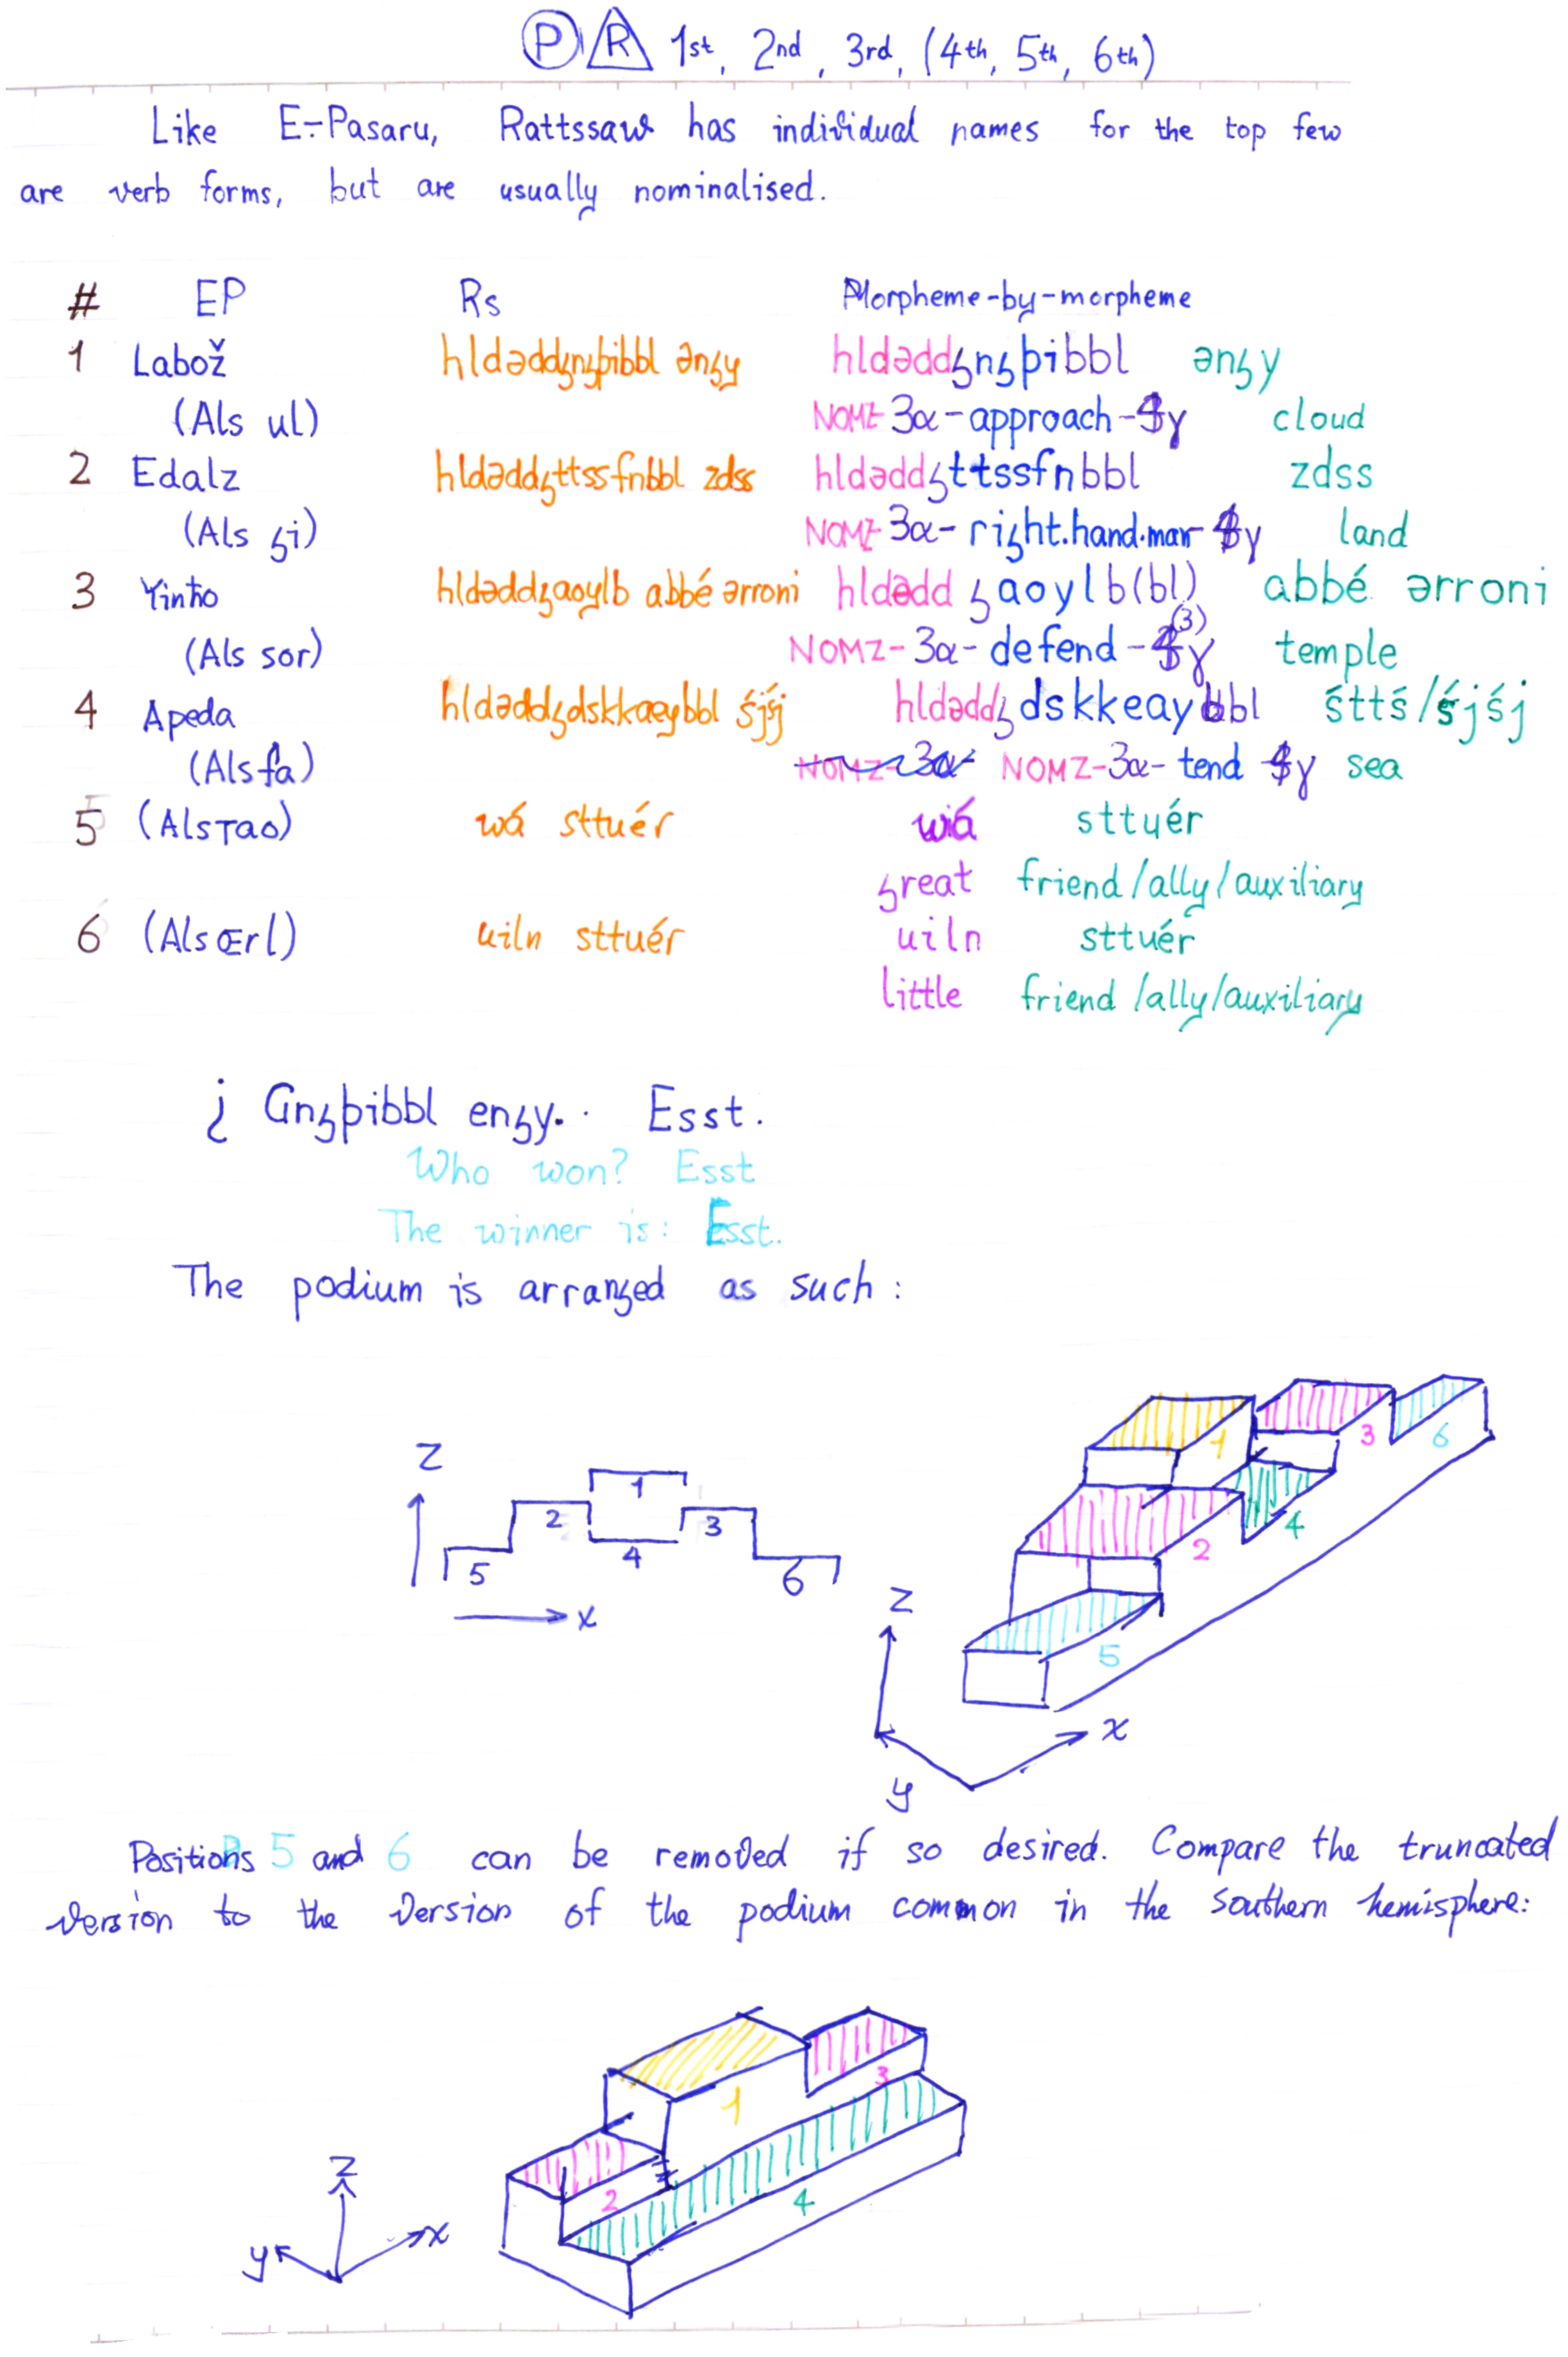 P R 1st, 2nd, 3rd, (4th, 5th, 6th)
Like E÷Pasaru, Rattssaw has individual names for the top few
are verb forms, but are usually nominalised.
# EP Rs Morpheme-by-morpheme
1 Labož hldəddȿnȿþibbl ənȿy hldəddȿnȿþibbl ənȿy
(Als ul) NOMZ 3α-approach-γ cloud
2 Edalz hldəddȿttssfnbbl zdss hldəddȿttssfnbbl zdss
(Als ȿi) NOMZ 3α-riȿht.hand.man-γ land
3 Yinho hldəddȿaoylb abbé ərroni hldədd ȿaoylb(bl) abbé ərroni
(Als sor) NOMZ-3α-defend-(3)γ temple
4 Apeda hldəddȿdskkaeybbl śjśj hldəddȿdskkeaybbl śttś/śjśj
(Als fa) NOMZ-3α-tend γ sea
5 (Als тao) wá sttuér wiá sttuér
ȿreat friend/ally/auxiliary
6 (Als œrl) uiln sttuér uiln sttuér
little friend/ally/auxiliary
¿ Gnȿþibbl enȿy.. Esst.
Who won? Esst
The winner is: Esst.
The podium is arranȿed as such:
1 3 6
Z
1
2 3
4
5 6
2 4
x
Z
5
x
y
Positions 5 and 6 can be removed if so desired. Compare the truncated
version to the version of the podium common in the southern hemisphere:
1 3
2 4
Z
y x